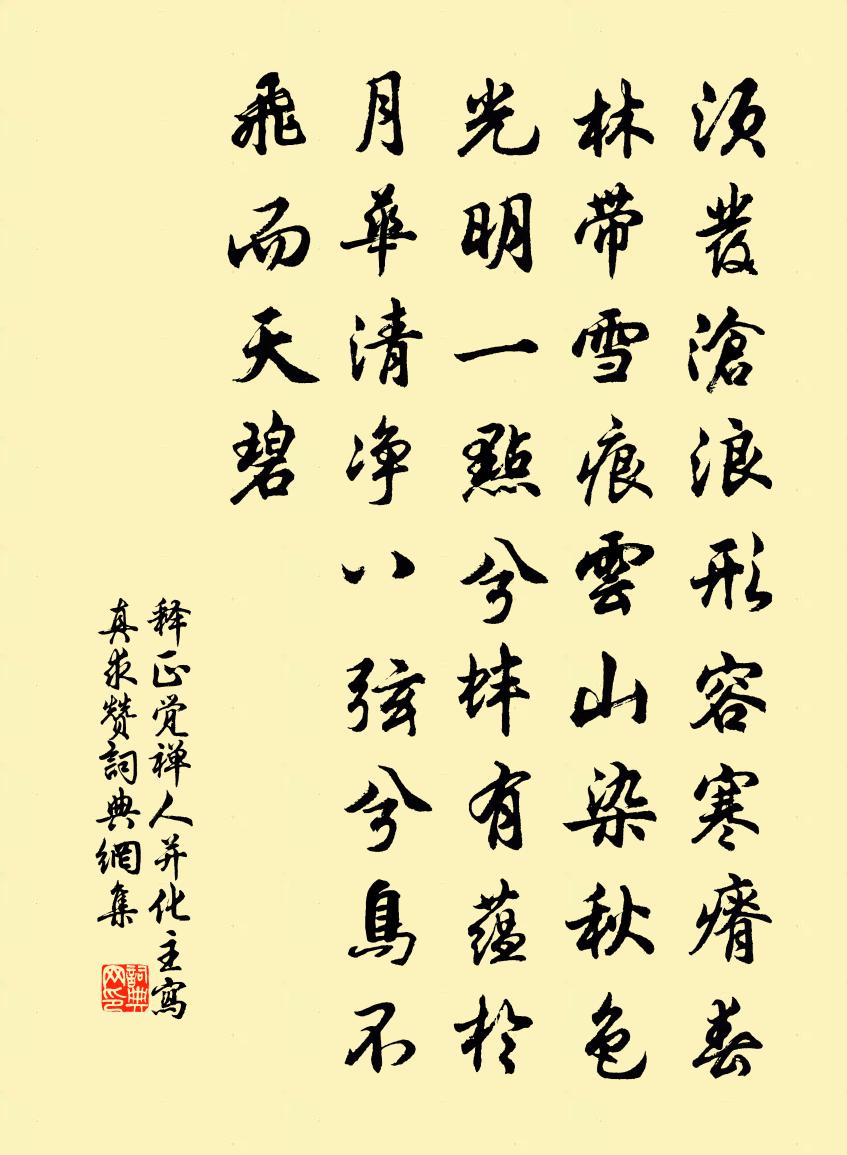 須發滄浪形容寒瘠春
林带雪痕雲山染秋色
光明一點兮蚌有蕴於
月華清净八弦兮鳥不
飛而天碧
释正觉禅人并化主寫
真求赞詞典網集
詞典网印